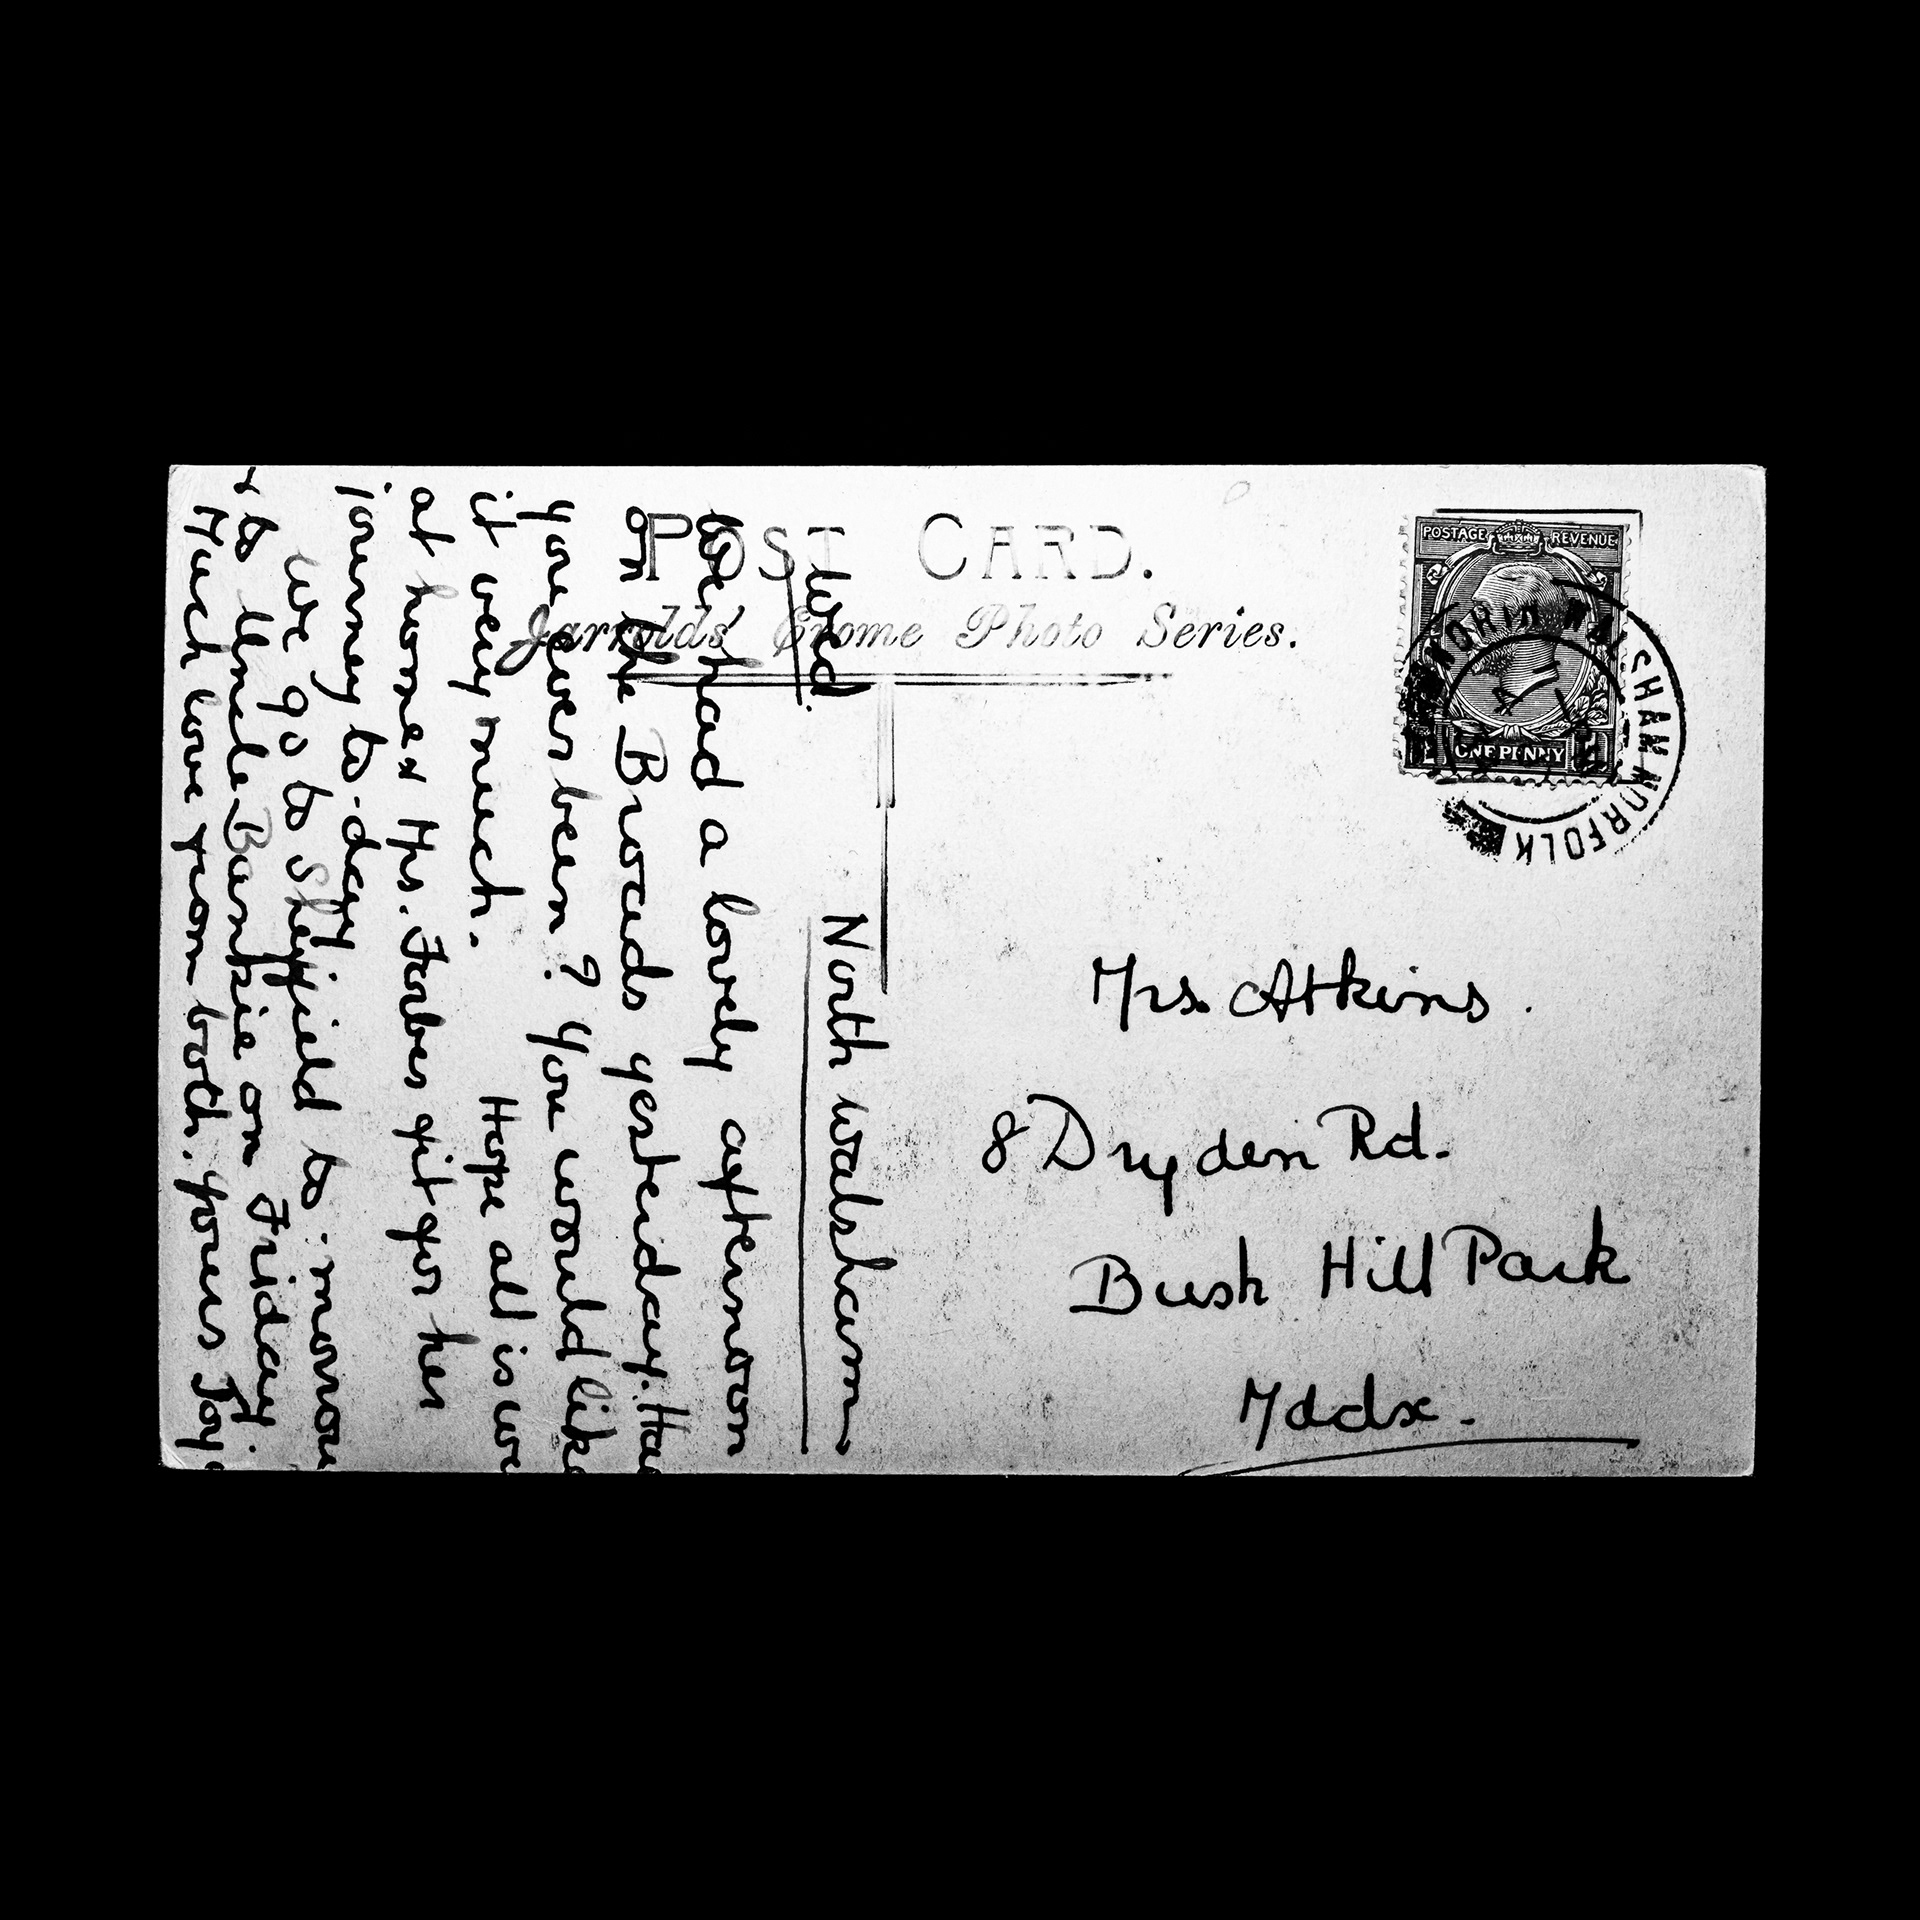 POST CARD.
Jarrolds' Crome Photo Series.
POSTAGE REVENUE
ONE PENNY
NORTH WALSHAM NORFOLK
North Walsham
Wed.
We had a lovely afternoon
on the Broads yesterday. Ha
you ever been? You would like
it very much. Hope all is we
at home & Mrs. Forbes fit for her
journey to-day
We go to Sheffield to-morrow
& to Uncle Bunkie on Friday.
Much love from both. Yours Joy.
Mrs. Atkins.
8 Dryden Rd.
Bush Hill Park
Mddx.